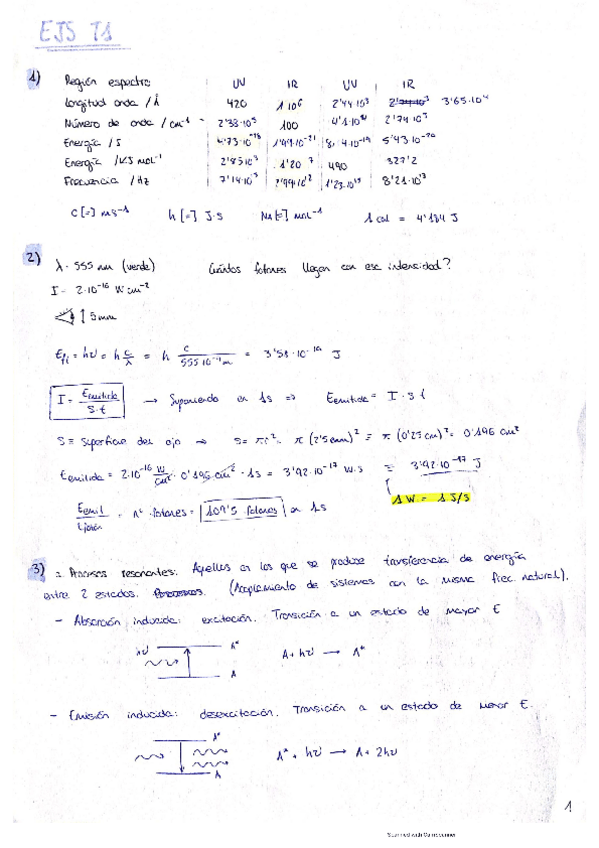 EJS T1
1) Región espectro UV IR UV IR
Longitud onda / Å 420 1·10⁶ 2'44·10³ 3'65·10⁴
Número de onda / cm⁻¹ 2'38·10⁵ 100 2'74·10³
Energía / J 1'99·10⁻²¹ 5'43·10⁻²⁰
Energía / KJ mol⁻¹ 2'85·10³ 490 327'2
Frecuencia / Hz 7'14·10¹⁵ 2'99·10¹² 1'23·10¹⁵ 8'21·10¹³
c [=] m s⁻¹ h [=] J·s NA [=] mol⁻¹ 1 cal = 4'184 J
2) λ = 555 nm (verde) Cuántos fotones llegan con esa intensidad?
I = 2·10⁻¹⁶ W cm⁻²
5mm
= hν = h c/λ = h c/555·10⁻⁹m = 3'58·10⁻¹⁹ J
I = Eemitida/S·t → Suponiendo en 1s ⇒ Eemitida = I·S·t
S ≡ superficie del ojo → S = πr² = π (2'5mm)² = π (0'25cm)² = 0'196 cm²
Eemitida = 2·10⁻¹⁶ W/cm² · 0'196 cm² · 1s = 3'92·10⁻¹⁷ W·s = 3'92·10⁻¹⁷ J
1W = 1 J/s
Eemit/ = nº fotones = 109'5 fotones en 1s
3) Procesos resonantes: Aquellos en los que se produce transferencia de energía
entre 2 estados. (Acoplamiento de sistemas con la misma frec. natural).
- Absorción inducida: excitación. Transición a un estado de mayor E
hν A*
A + hν → A*
A
- Emisión inducida: desexcitación. Transición a un estado de menor E.
A*
A* + hν → A + 2hν
A
1
Scanned with CamScanner